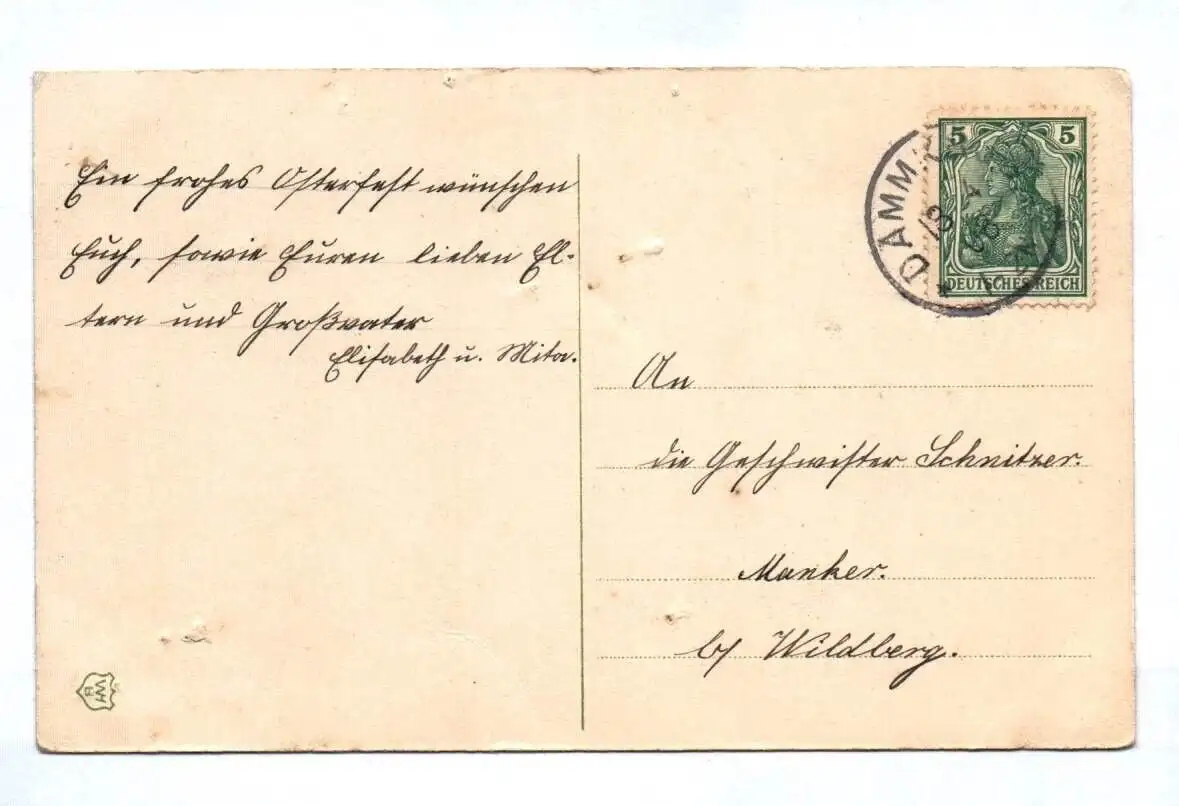 Ein frohes Osterfest wünschen
Euch, sowie Euren lieben El-
tern und Großvater
Elisabeth u. Mita.
5 5
DEUTSCHES REICH
An
die Geschwister Schnitzer.
Manker.
b/ Wildberg.
WH
B